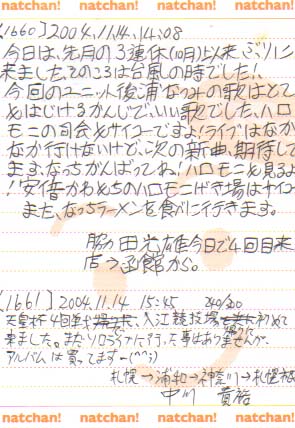 natchan! natchan! natchan! natchan! natchan!
[1660] 2004.11.14.14:08
今日は、先月の3連休(10月)以来ぶりに
来ました。そのころは台風の時でした！、
今回のユニット後浦なつみの歌はとて
もはじけるかんじで、いい歌でした。ハロ
モニの司会もサイコーですよ！ライブはなか
なか行けないけど、次の新曲、期待して
ます。なっちがんばってね！ハロモニも見るよ
！安倍かわもちのハロモニげき場はサイコー
また、なっちラーメンを食べに行きます。
脇田光雄 今日で4回目来
店→函館から。
[1661] 2004.11.14 15:45 240/300
天皇杯4回戦 入江競技場 初めて
来ました。
アルバムは買ってますー(^^;)
札幌→浦和→神奈川→札幌
中川
natchan! natchan! natchan! natchan! natchan!